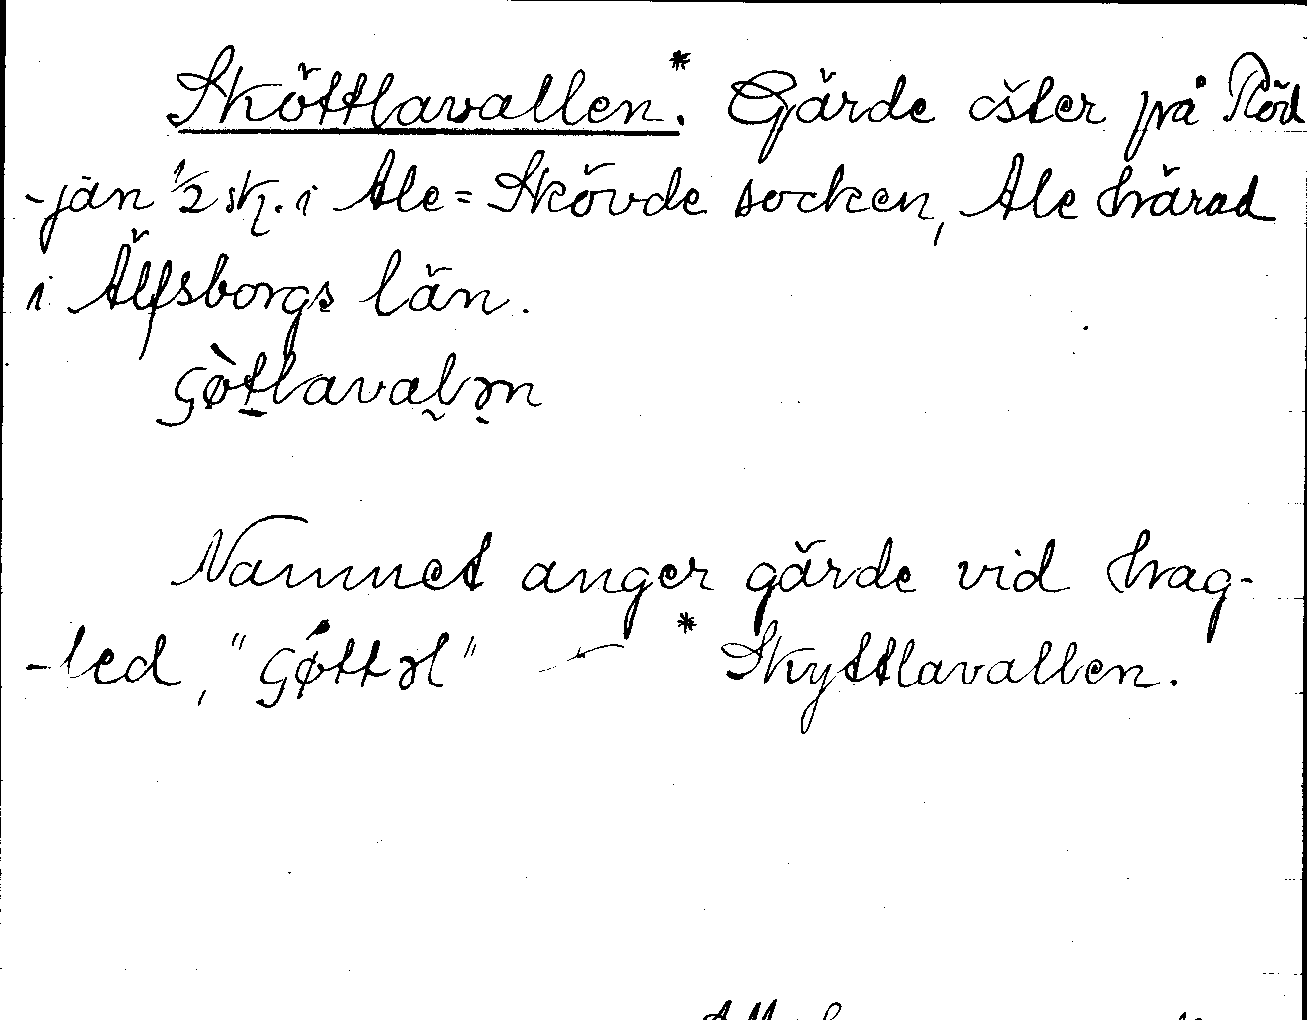 Sköttlavallen.* Gärde öster på Röd
-jän 1/2 sk. i Ale=Skövde socken, Ale härad
i Älfsborgs län.
ʂø̀tlavalən
Namnet anger gärde vid hag-
-led, "ʂøttəl" — * Skyttlavallen.